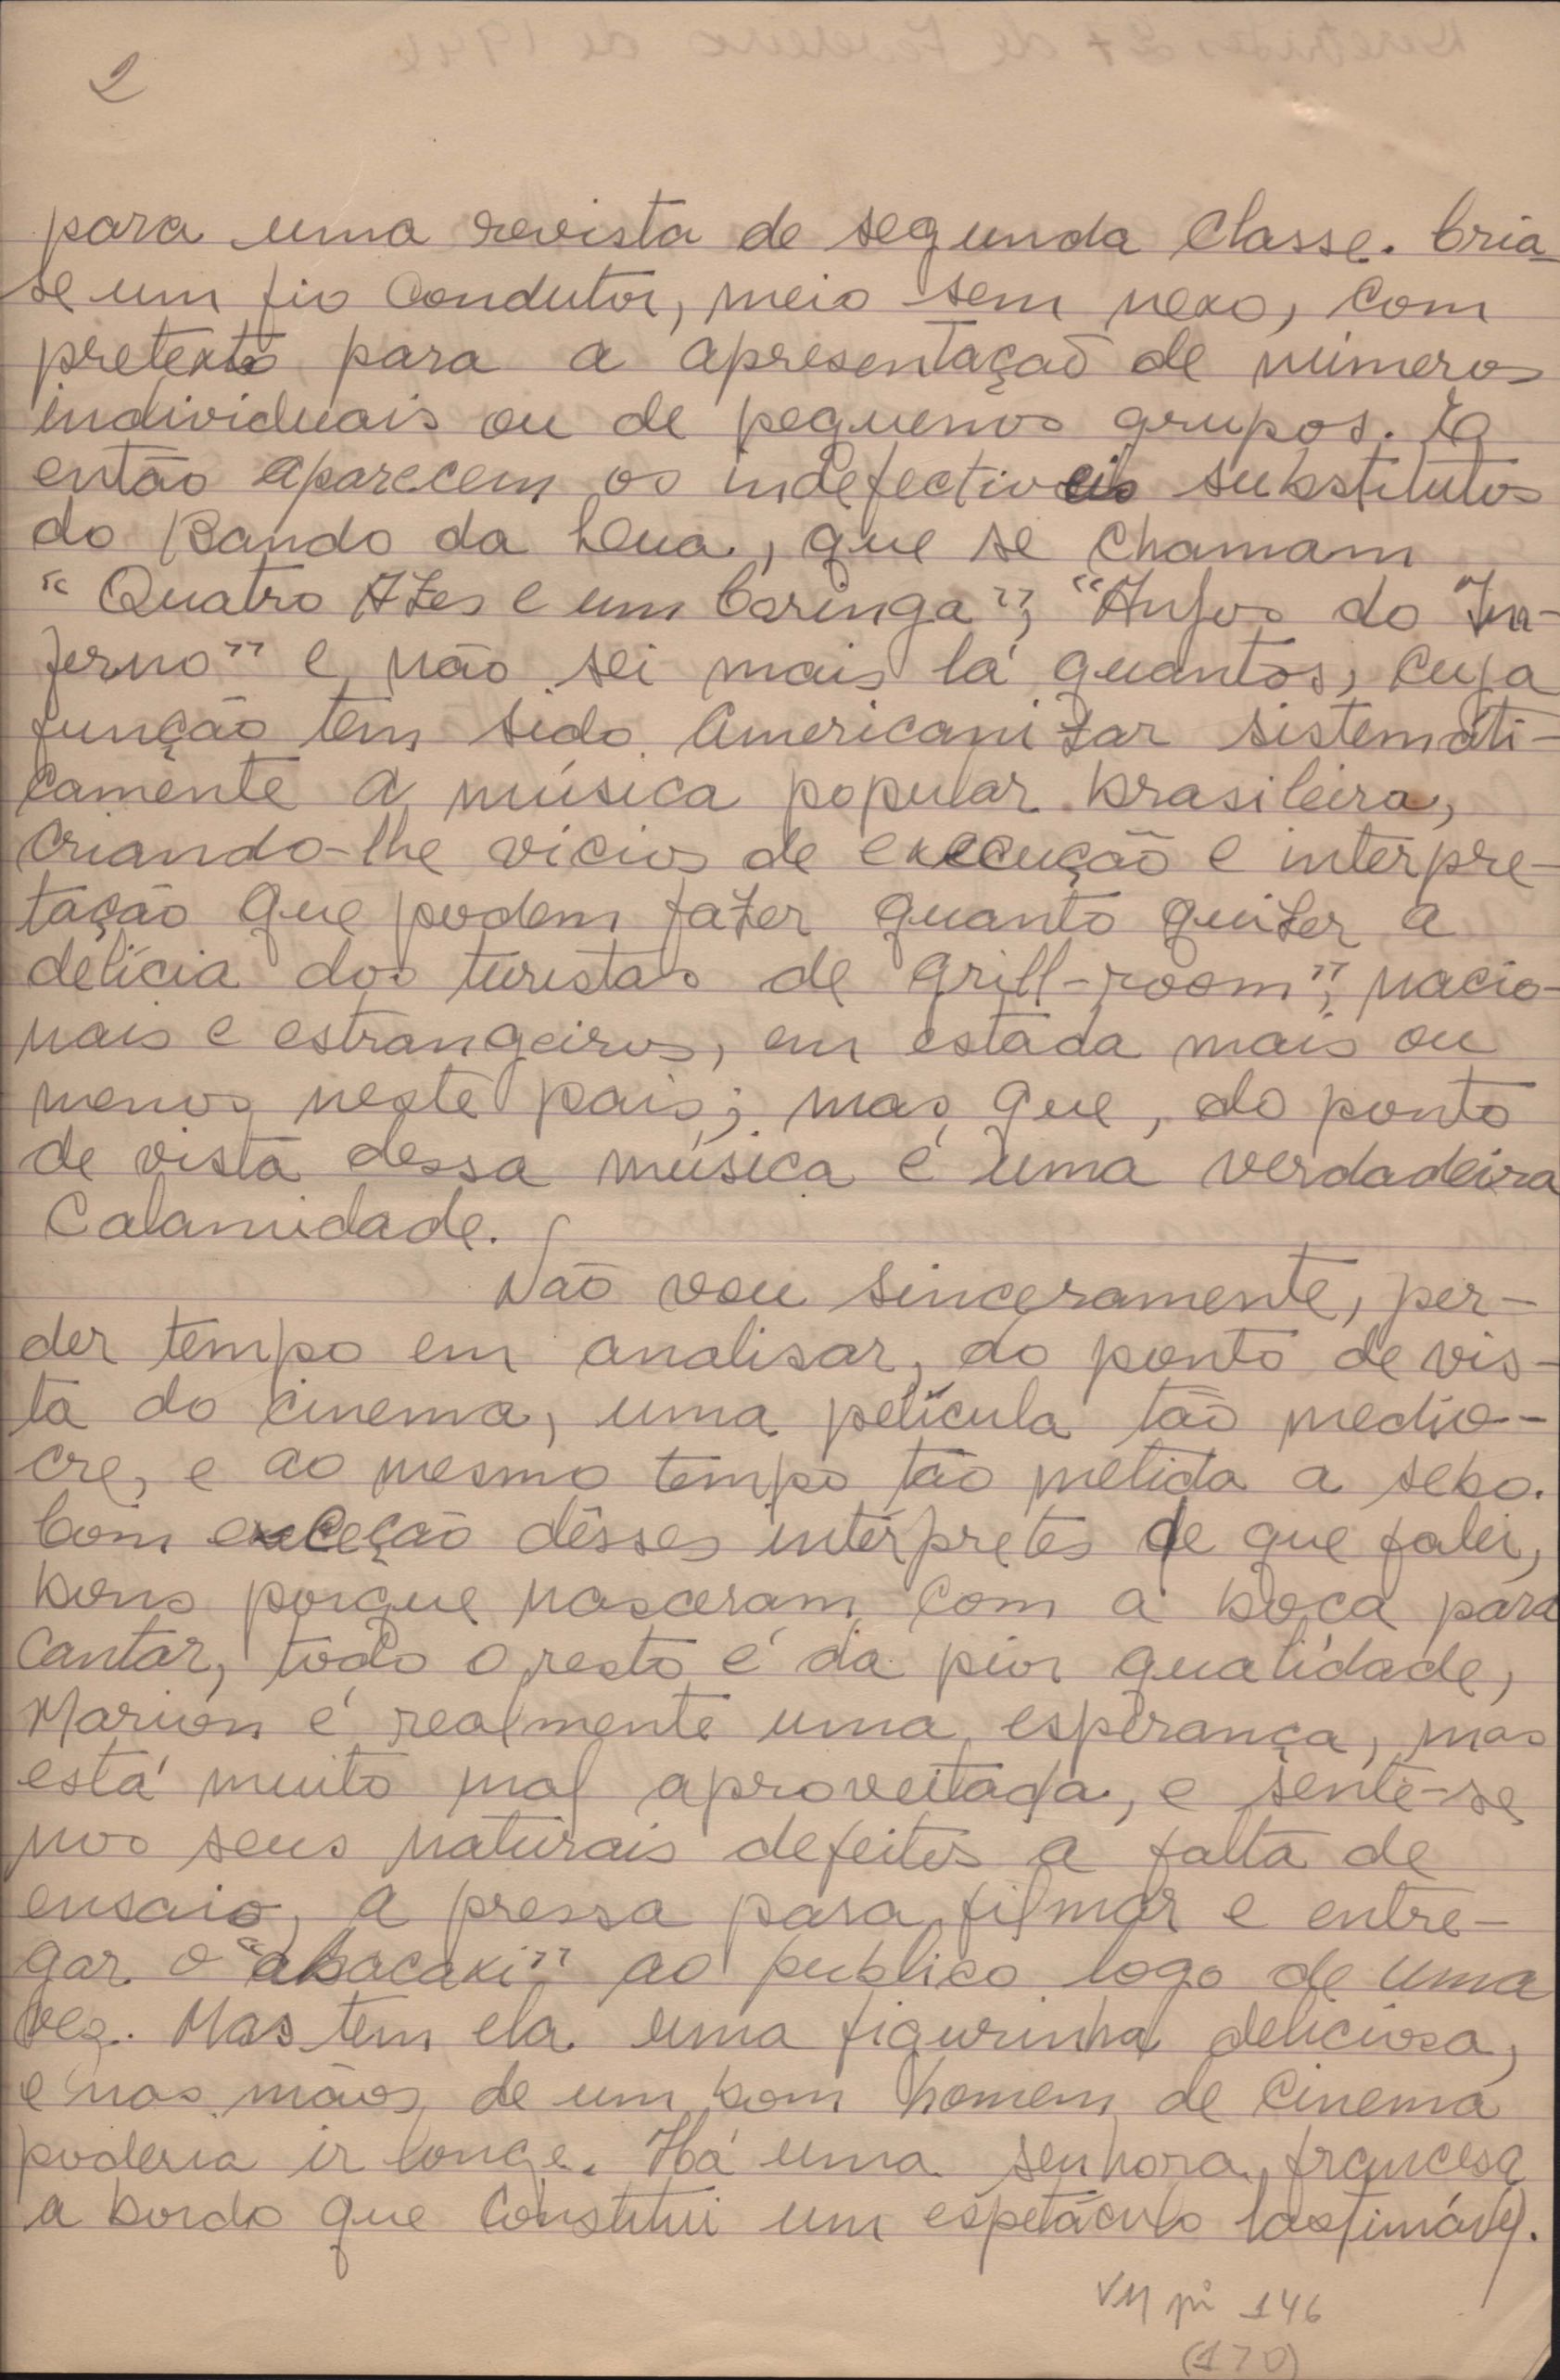 2
para uma revista de segunda classe. Cria-
se um fio condutor, meio sem nexo, com
pretexto para a apresentação de números
individuais ou de pequenos grupos. E
então aparecem os indefectiveis substitutos
do Bando da Lua, que se chamam
"Quatro Azes e um Coringa", "Anjos do In-
ferno" e não sei mais lá quantos, cuja
função tem sido americanizar sistemáti-
camente a música popular brasileira,
criando-lhe vícios de execução e interpre-
tação que podem fazer quanto quizer a
delícia dos turistas de grill-room", nacio-
nais e estrangeiros, em estada mais ou
menos neste pais; mas que, do ponto
de vista dessa música é uma verdadeira
calamidade.
Não vou sinceramente, per-
der tempo em analisar, do ponto de vis-
ta do cinema, uma película tão medio-
cre, e ao mesmo tempo tão metida a sebo.
Com exceção dêsses intérpretes de que falei,
bons porque nasceram com a boca para
cantar, todo o resto é da pior qualidade,
Marion é realmente uma esperança, mas
está muito mal aproveitada, e sente-se
nos seus naturais defeitos a falta de
ensaio, a pressa para filmar e entre-
gar o "abacaxi" ao publico logo de uma
vez. Mas tem ela uma figurinha deliciosa,
e nas mãos de um bom homem de cinema
poderia ir longe. Há uma senhora francesa
a bordo que constitui um espetáculo lastimável.
VM pi 146
(170)